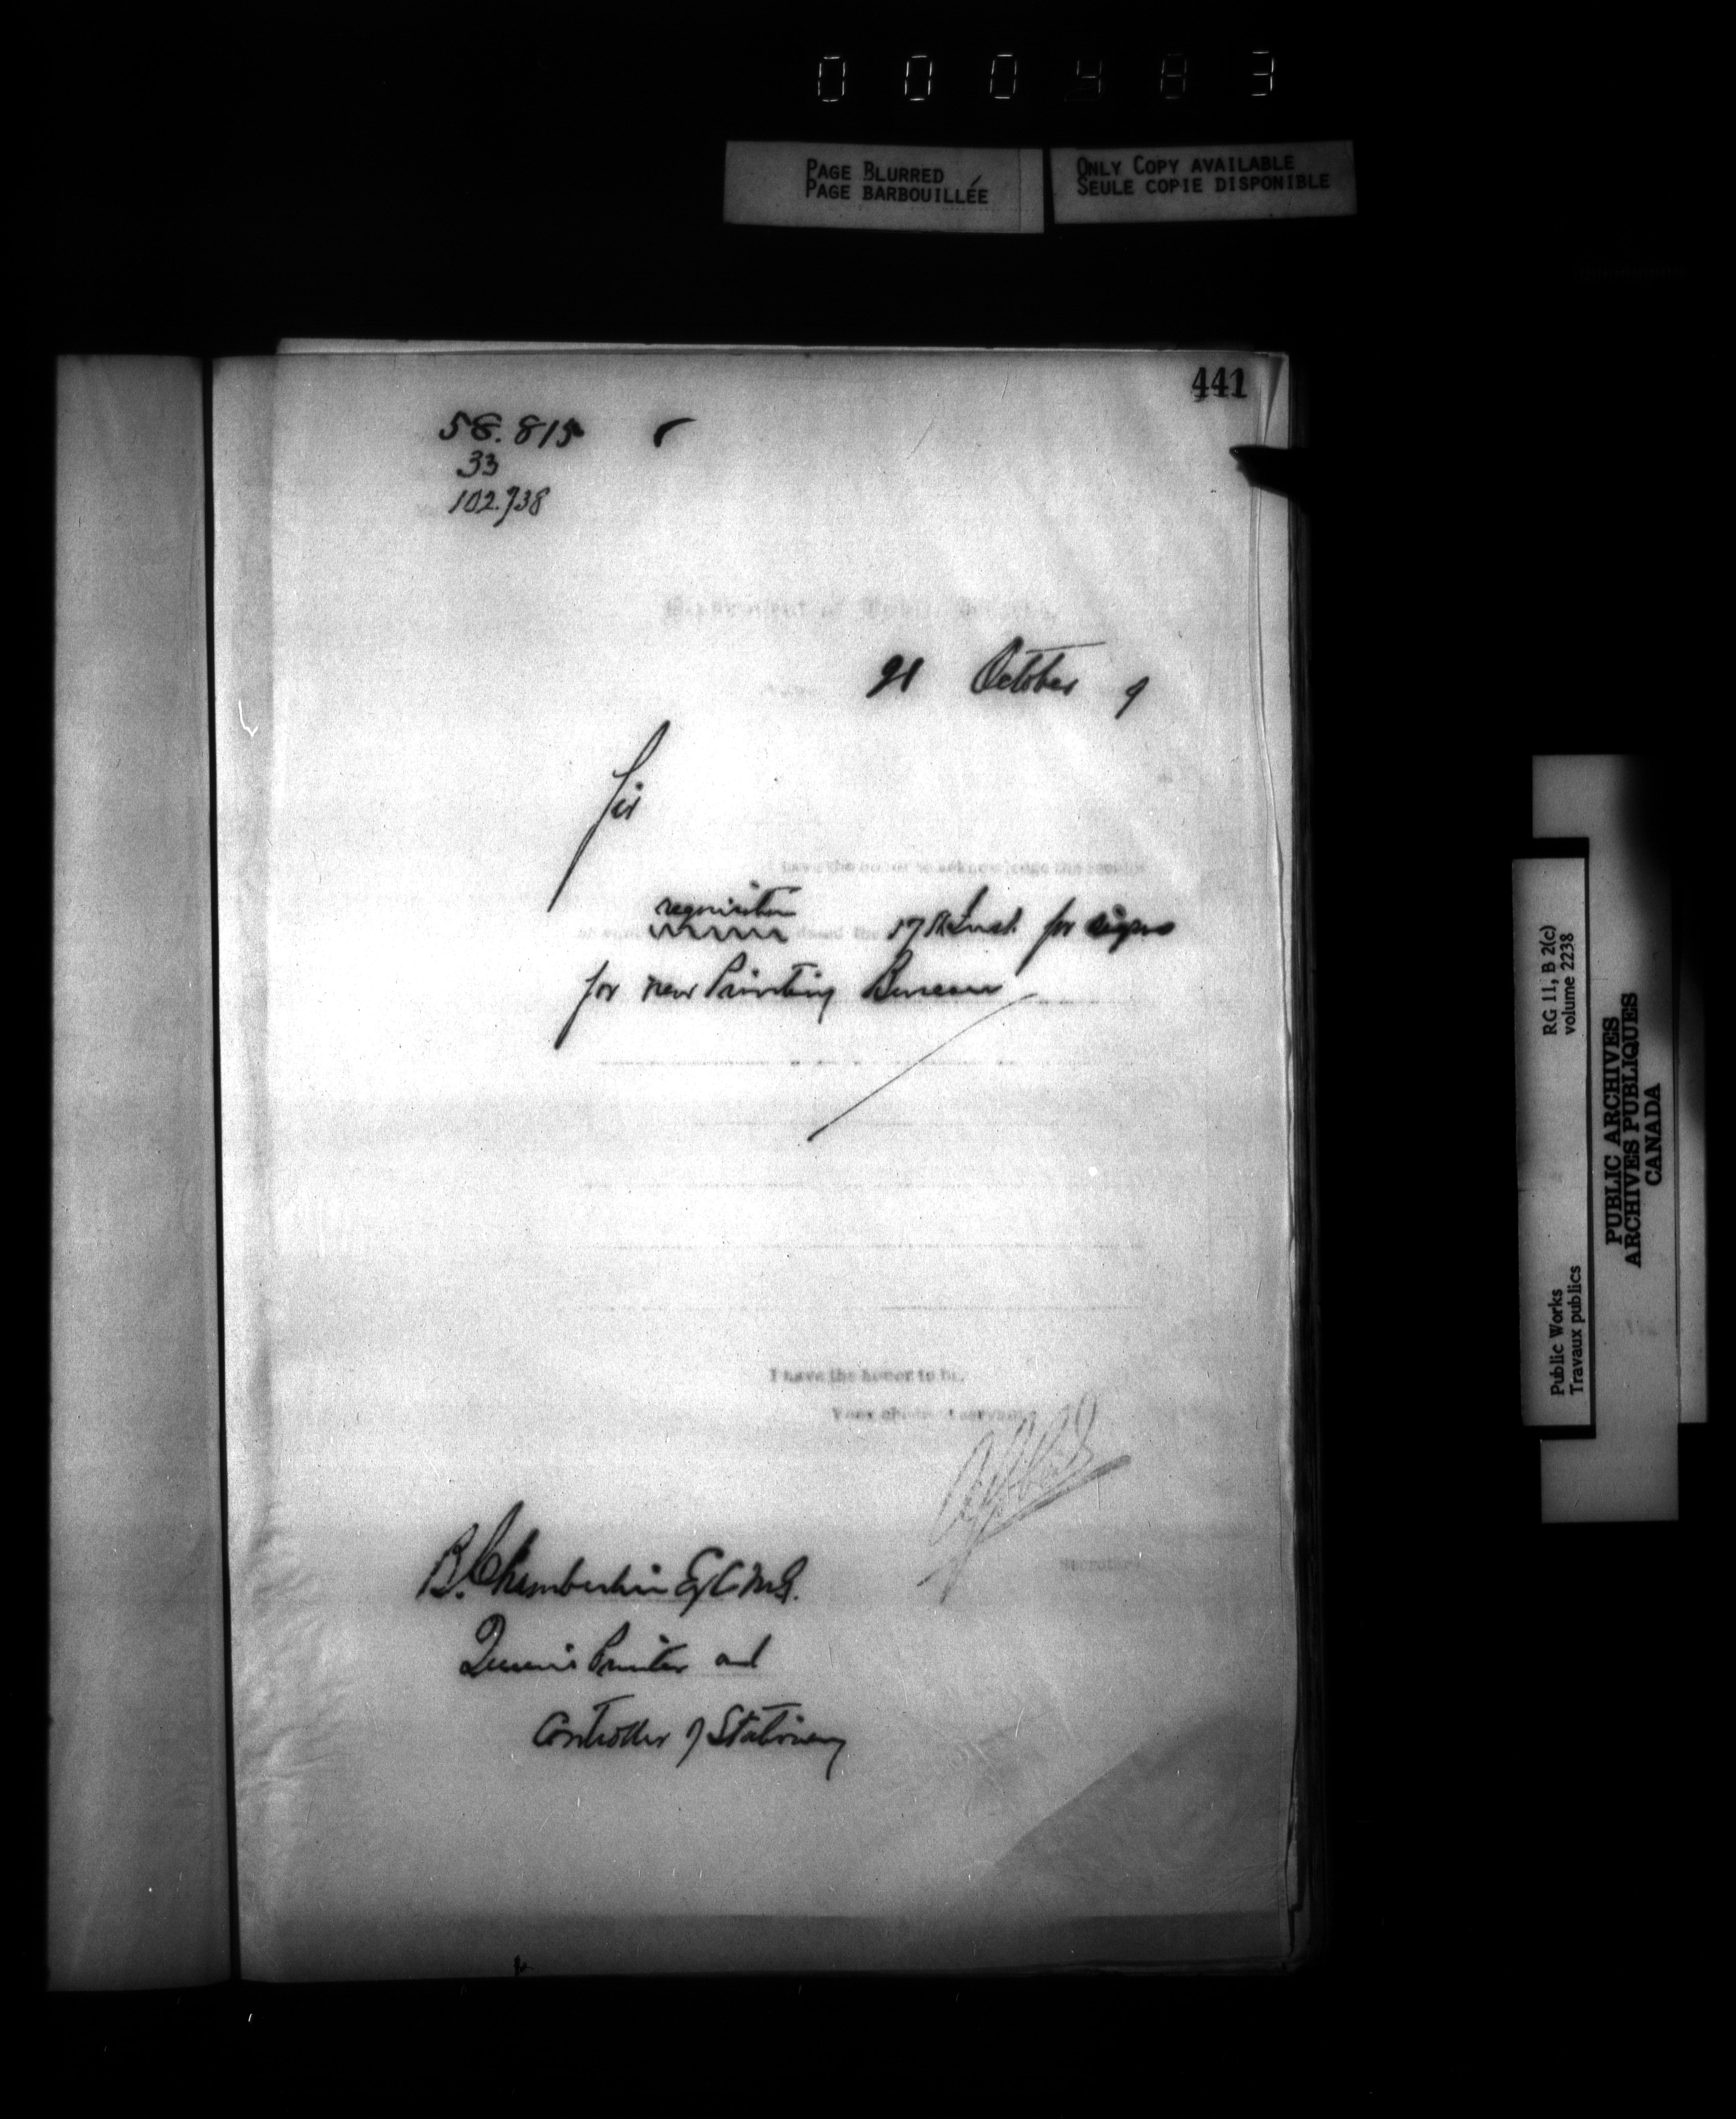 000483
PAGE BLURRED
PAGE BARBOUILLÉE
ONLY COPY AVAILABLE
SEULE COPIE DISPONIBLE
441
58.815
33
102.738
Department of Public
21 October 9
Sir
have the honor to acknowledge the receipt
requisition
17th Inst. for signs
for new Printing Bureau
I have the honor to be,
Your obedient servant
Secretary
B. Chamberlin Esq C.M.G.
Queen's Printer and
Controller of Stationery
RG 11, B 2(c)
volume 2238
Public Works
Travaux publics
PUBLIC ARCHIVES
ARCHIVES PUBLIQUES
CANADA